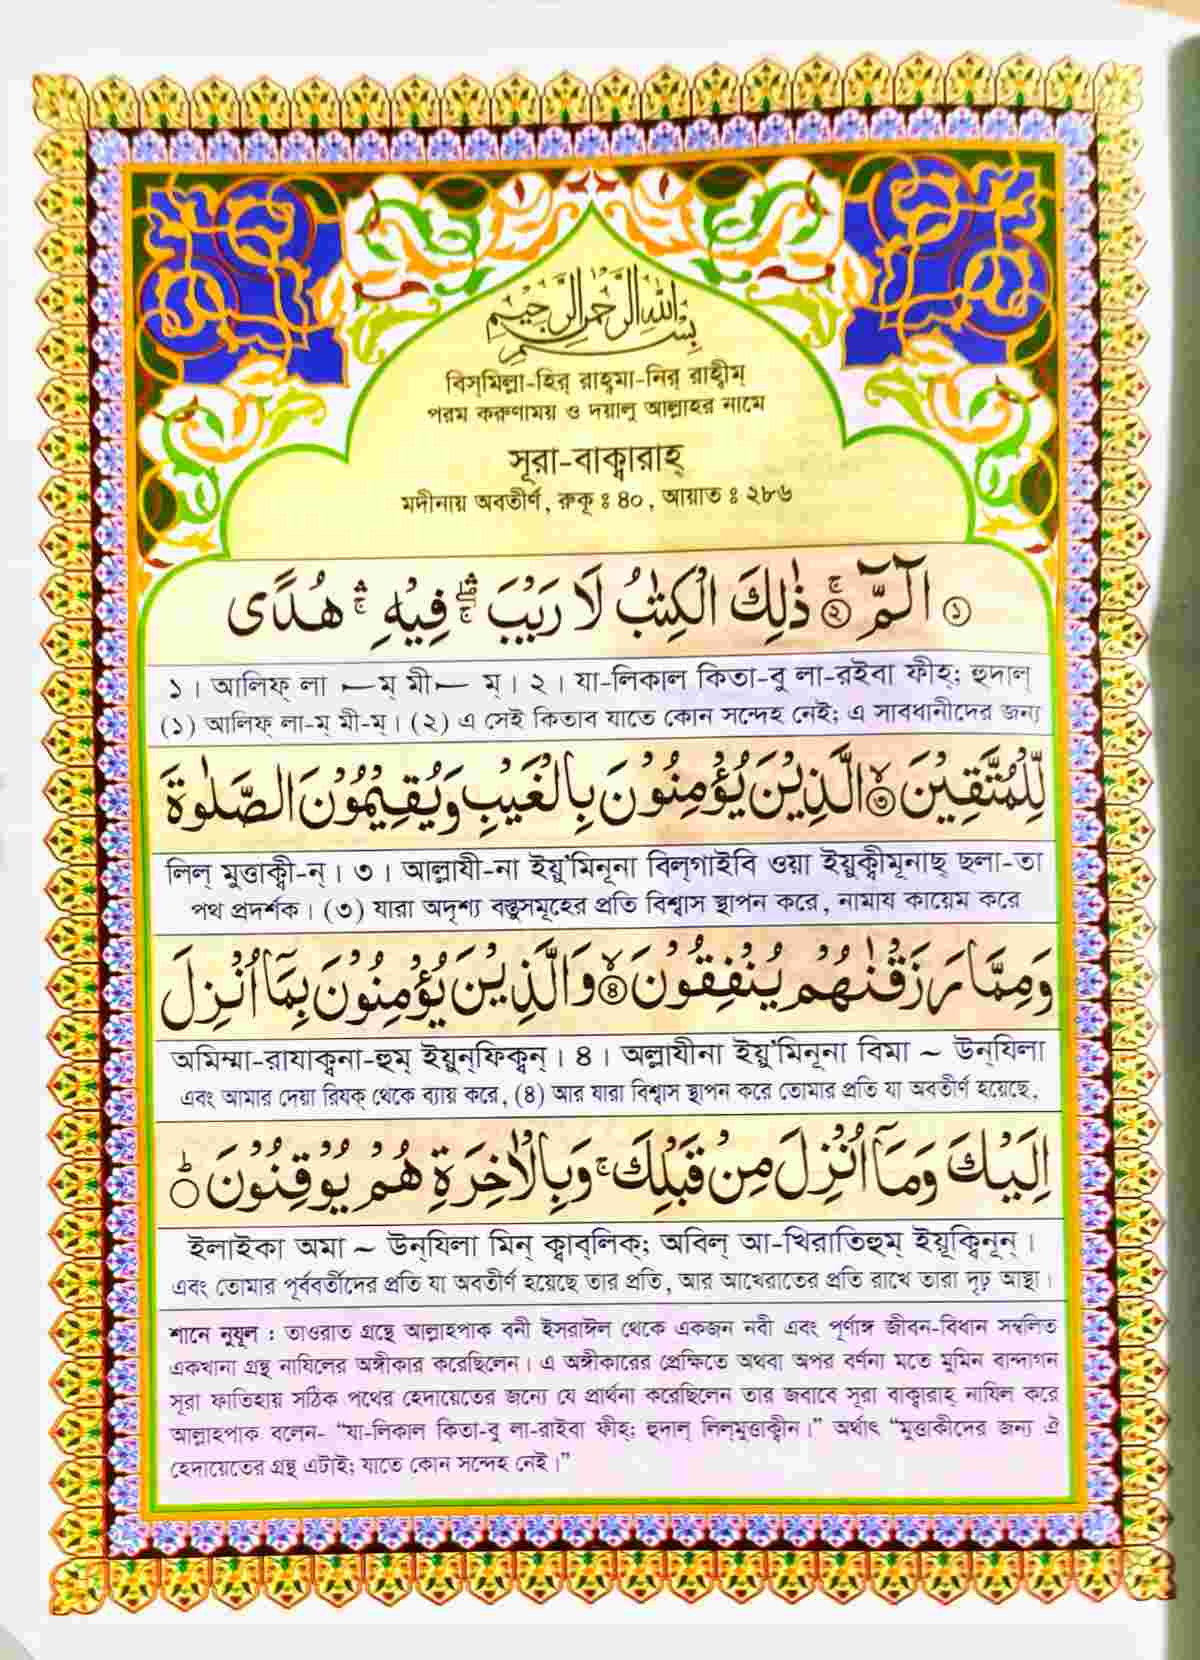 بِسْمِ اللهِ الرَّحْمٰنِ الرَّحِيْمِ
বিস্‌মিল্লা-হির্ রাহ্বমা-নির্ রাহ্বীম্
পরম করুণাময় ও দয়ালু আল্লাহর নামে
সূরা-বাক্বারাহ্
মদীনায় অবতীর্ণ, রুকূ ঃ ৪০, আয়াত ঃ ২৮৬
১ الٓـمّٓ ۚ ২ ذٰلِكَ الْكِتٰبُ لَا رَيْبَ ۛ فِيْهِ ۛ هُدًى
১। আলিফ্ লা —ম্ মী— ম্। ২। যা-লিকাল কিতা-বু লা-রইবা ফীহ্; হুদাল্
(১) আলিফ্ লা-ম্ মী-ম্। (২) এ সেই কিতাব যাতে কোন সন্দেহ নেই; এ সাবধানীদের জন্য
لِّلْمُتَّقِيْنَ ۙ ৩ الَّذِيْنَ يُؤْمِنُوْنَ بِالْغَيْبِ وَيُقِيْمُوْنَ الصَّلٰوةَ
লিল্ মুত্তাক্বী-ন্। ৩। আল্লাযী-না ইয়ু'মিনূনা বিল্‌গাইবি ওয়া ইয়ুক্বীমূনাছ্ ছলা-তা
পথ প্রদর্শক। (৩) যারা অদৃশ্য বস্তুসমূহের প্রতি বিশ্বাস স্থাপন করে, নামায কায়েম করে
وَمِمَّا رَزَقْنٰهُمْ يُنْفِقُوْنَ ۙ ৪ وَالَّذِيْنَ يُؤْمِنُوْنَ بِمَآ اُنْزِلَ
অমিম্মা-রাযাক্বনা-হুম্ ইয়ুন্‌ফিক্বূন্। ৪। অল্লাযীনা ইয়ু'মিনূনা বিমা ~ উন্‌যিলা
এবং আমার দেয়া রিযক্ থেকে ব্যায় করে, (৪) আর যারা বিশ্বাস স্থাপন করে তোমার প্রতি যা অবতীর্ণ হয়েছে,
اِلَيْكَ وَمَآ اُنْزِلَ مِنْ قَبْلِكَ ۚ وَبِالْاٰخِرَةِ هُمْ يُوْقِنُوْنَ ؕ
ইলাইকা অমা ~ উন্‌যিলা মিন্ ক্বাব্‌লিক্; অবিল্ আ-খিরাতিহুম্ ইয়ূক্বিনূন্।
এবং তোমার পূর্ববর্তীদের প্রতি যা অবতীর্ণ হয়েছে তার প্রতি, আর আখেরাতের প্রতি রাখে তারা দৃঢ় আস্থা।
শানে নুযূল : তাওরাত গ্রন্থে আল্লাহপাক বনী ইসরাঈল থেকে একজন নবী এবং পূর্ণাঙ্গ জীবন-বিধান সম্বলিত
একখানা গ্রন্থ নাযিলের অঙ্গীকার করেছিলেন। এ অঙ্গীকারের প্রেক্ষিতে অথবা অপর বর্ণনা মতে মুমিন বান্দাগন
সূরা ফাতিহায় সঠিক পথের হেদায়েতের জন্যে যে প্রার্থনা করেছিলেন তার জবাবে সূরা বাক্বারাহ্ নাযিল করে
আল্লাহপাক বলেন- “যা-লিকাল কিতা-বু লা-রাইবা ফীহ্; হুদাল্ লিল্‌মুত্তাক্বীন।” অর্থাৎ “মুত্তাকীদের জন্য ঐ
হেদায়েতের গ্রন্থ এটাই; যাতে কোন সন্দেহ নেই।”